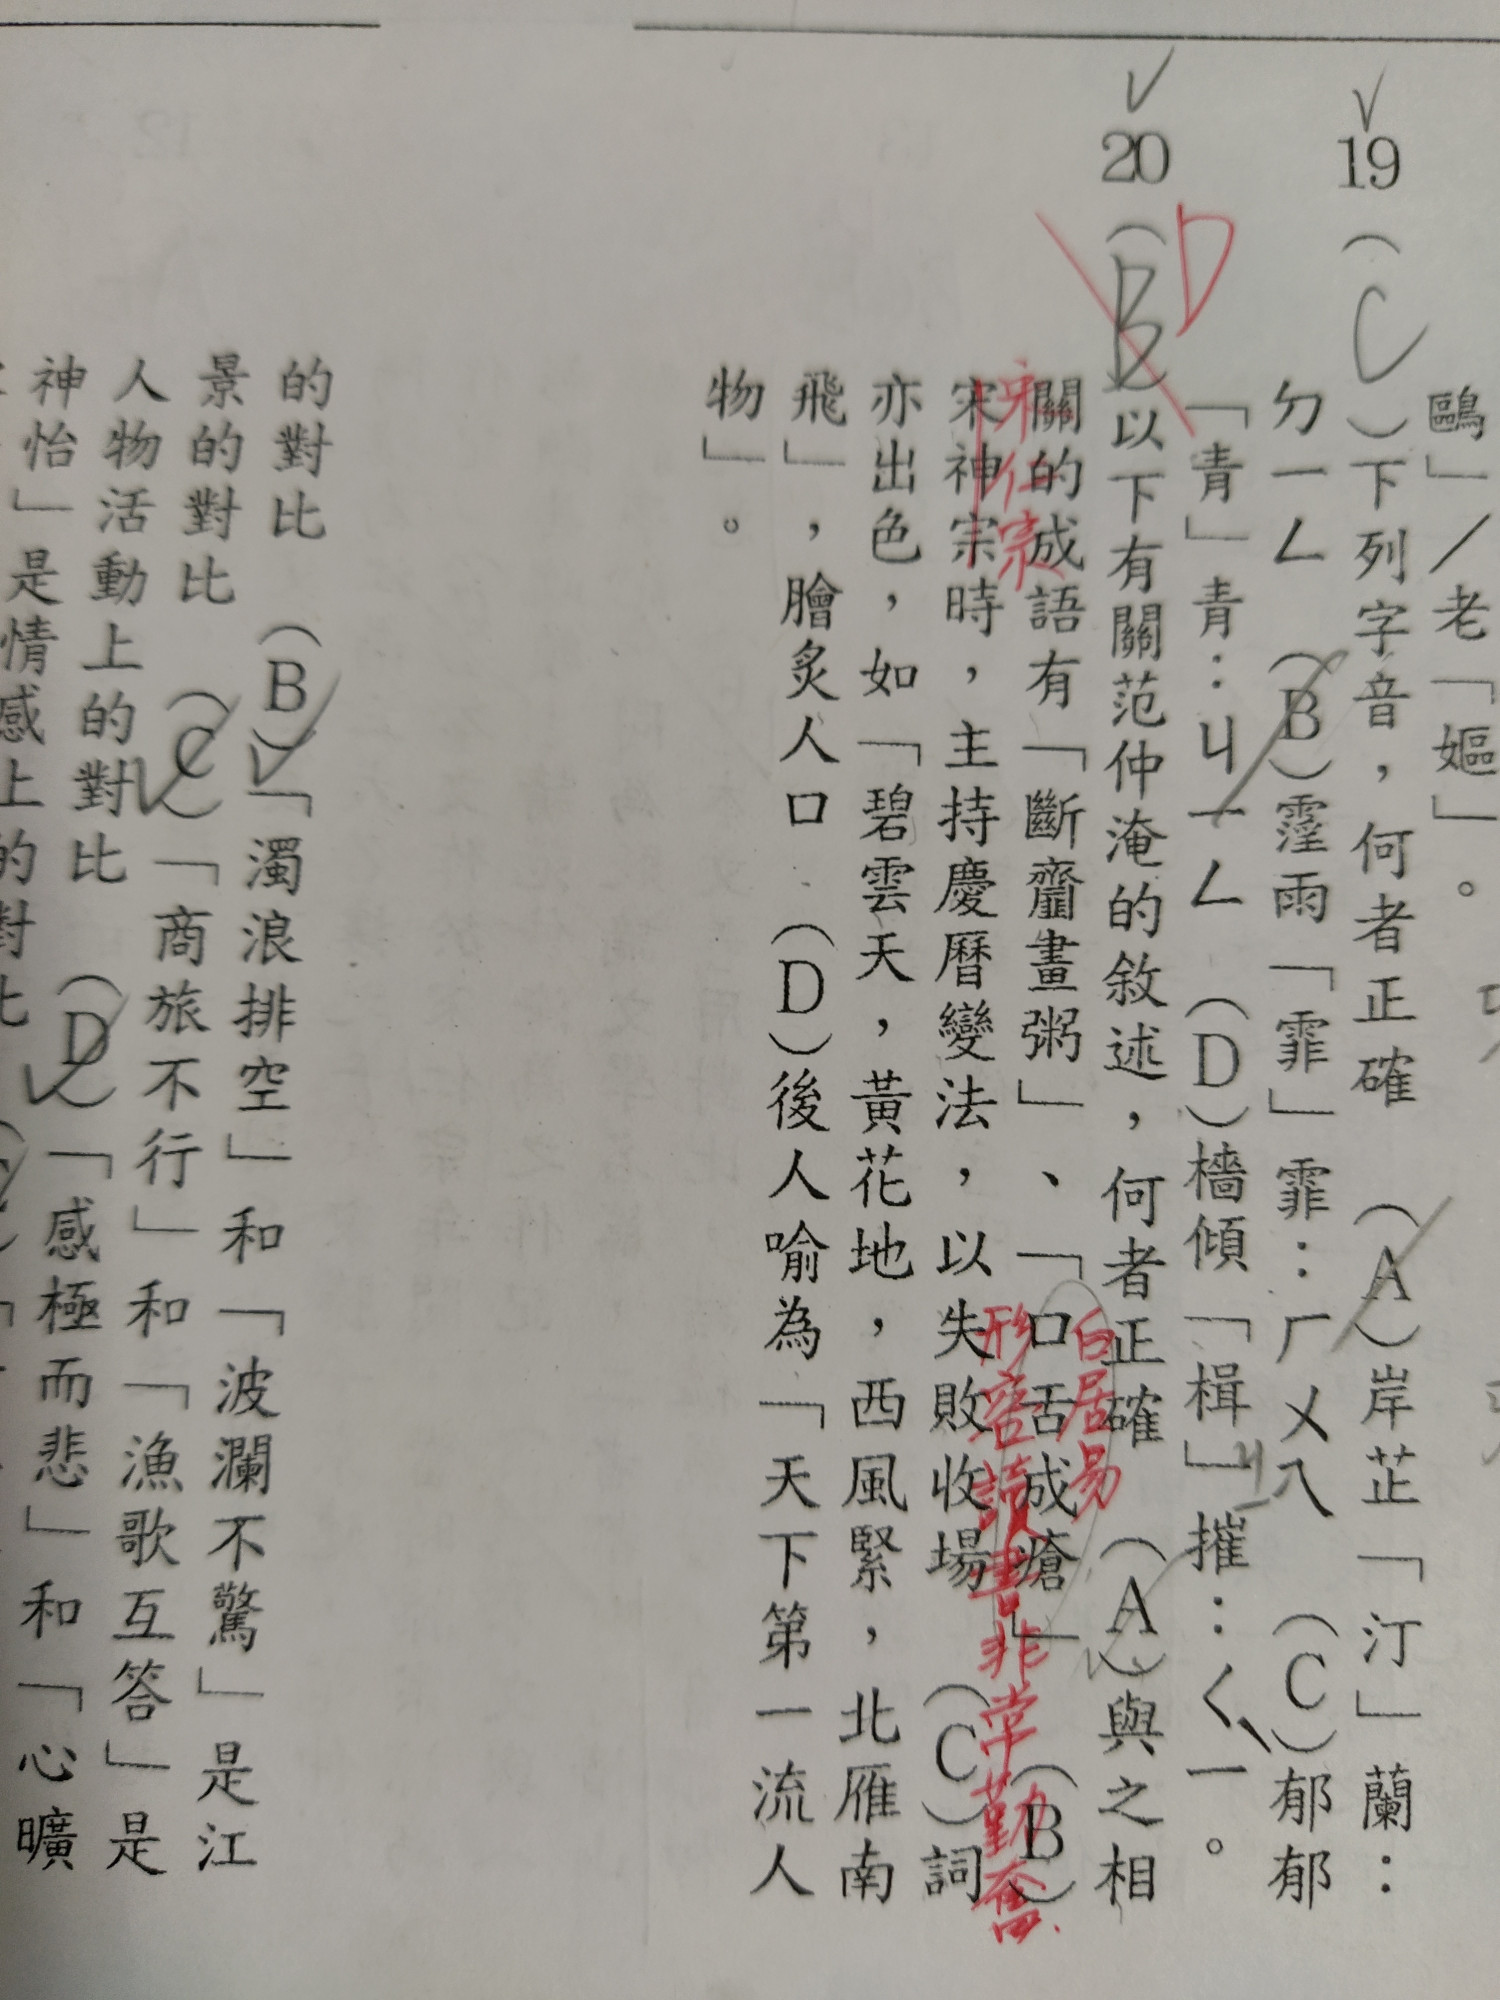 鷗」／老「嫗」。
✓
19
(C)下列字音，何者正確 (A)岸芷「汀」蘭：
ㄉㄧㄥ (B)霪雨「霏」霏：ㄏㄨㄟ (C)郁郁
「青」青：ㄐㄧㄥ (D)檣傾「楫」摧：ㄑㄧ。
ㄐㄧ
✓
20
(B)以下有關范仲淹的敘述，何者正確 (A)與之相
D
白居易
關的成語有「斷齏畫粥」、「口舌成瘡」 (B)
宋仁宗
形容讀書非常勤奮
宋神宗時，主持慶曆變法，以失敗收場 (C)詞
亦出色，如「碧雲天，黃花地，西風緊，北雁南
飛」，膾炙人口 (D)後人喻為「天下第一流人
物」。
的對比 (B)「濁浪排空」和「波瀾不驚」是江
景的對比 (C)「商旅不行」和「漁歌互答」是
人物活動上的對比 (D)「感極而悲」和「心曠
神怡」是情感上的對比